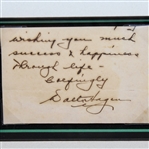 Wishing you much
success & happiness
through life -
Golfingly
Walter Hagen